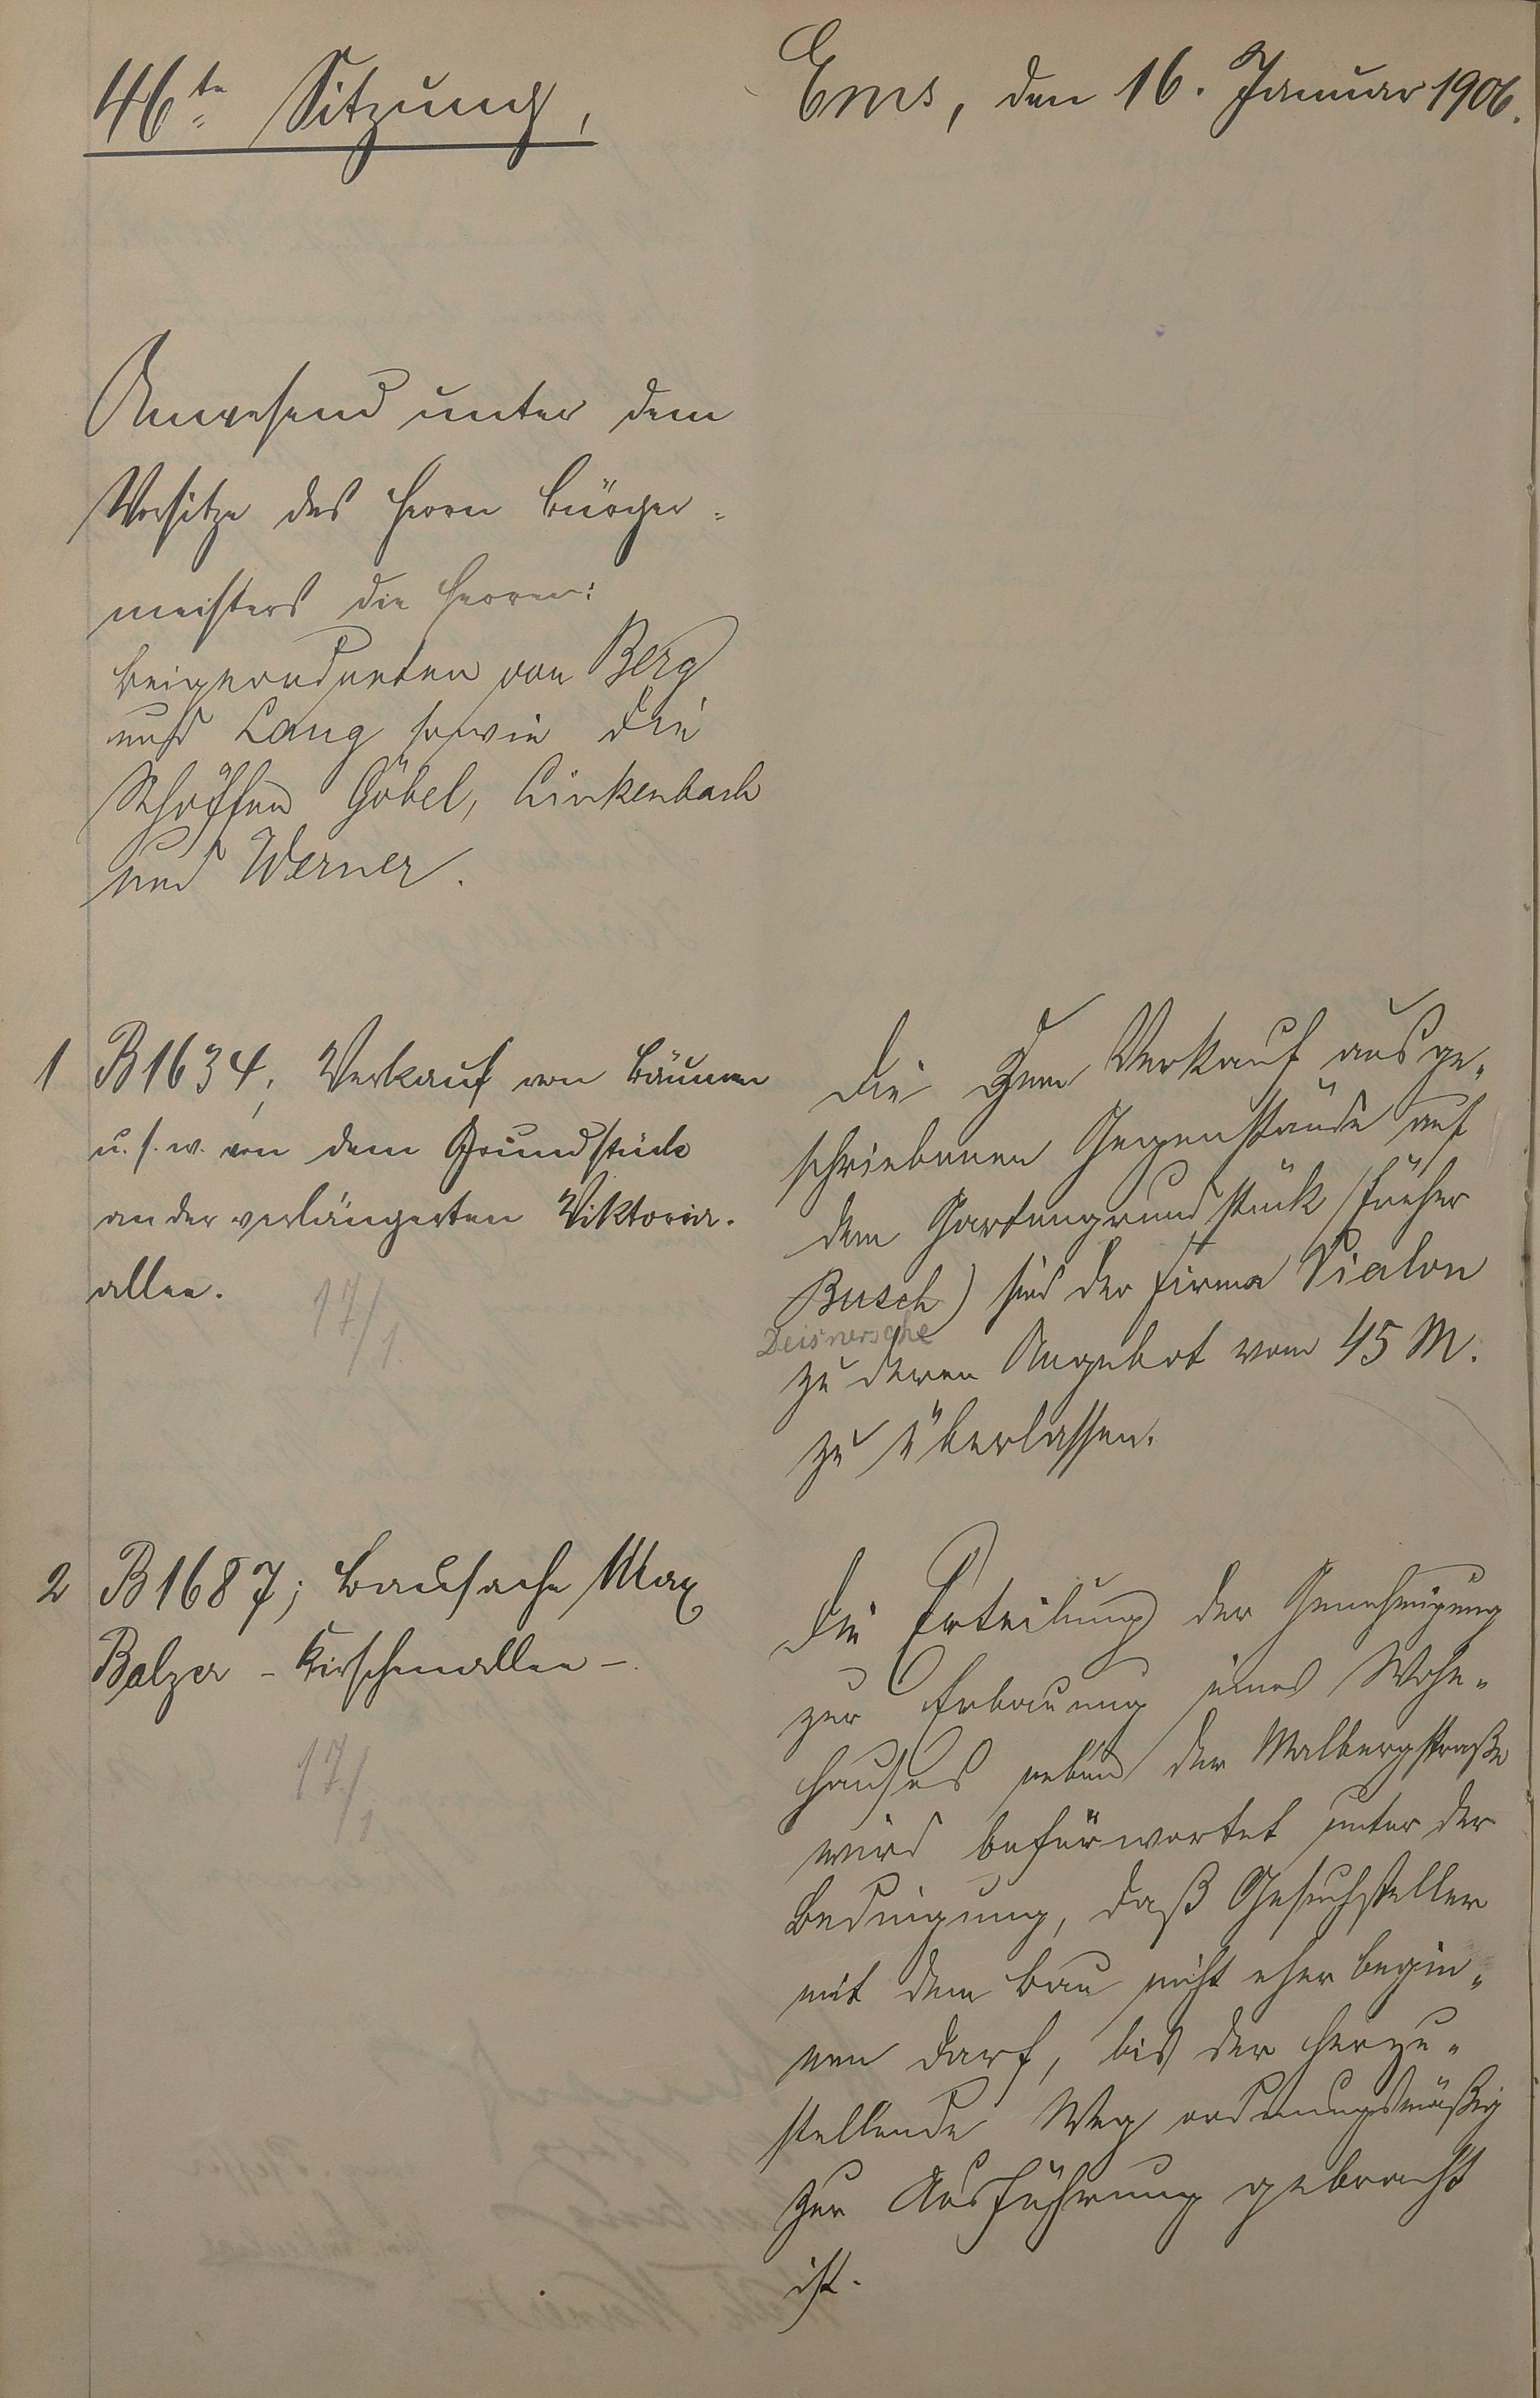 46te Sitzung,
Ems, den 16. Januar 1906.
Anwesend unter dem
Vorsitze des Herrn Bürger-
meisters die Herren:
Beigeordneten von Berg
und Lang sowie die
Schöffen Göbel, Linkenbach
und Werner.
1 B1634; Verkauf von Bäumen
u. s. w. von dem Grundstück
an der verlängerten Viktoria-
allee.
17/1.
Die zum Verkauf ausge-
schriebenen Gegenstände auf
dem Gartengrundstück (früher
Busch) sind der Firma Vialon
Deisnersche
zu deren Angebot vom 45 M.
zu überlassen.
2 B1687; Bausache Max
Balzer - Kirschenallee -.
17/1
Die Erteilung der Genehmigung
zur Erbauung eines Wohn-
hauses neben der Malbergstraße
wird befürwortet unter der
Bedingung, daß Gesuchsteller
mit dem Bau nicht eher begin-
nen darf, bis der herzu-
stellende Weg ordnungsmäßig
zur Ausführung gebracht
ist.